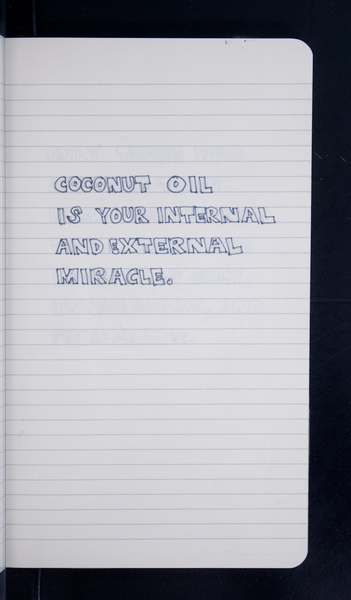 COCONUT OIL
IS YOUR INTERNAL
AND EXTERNAL
MIRACLE.